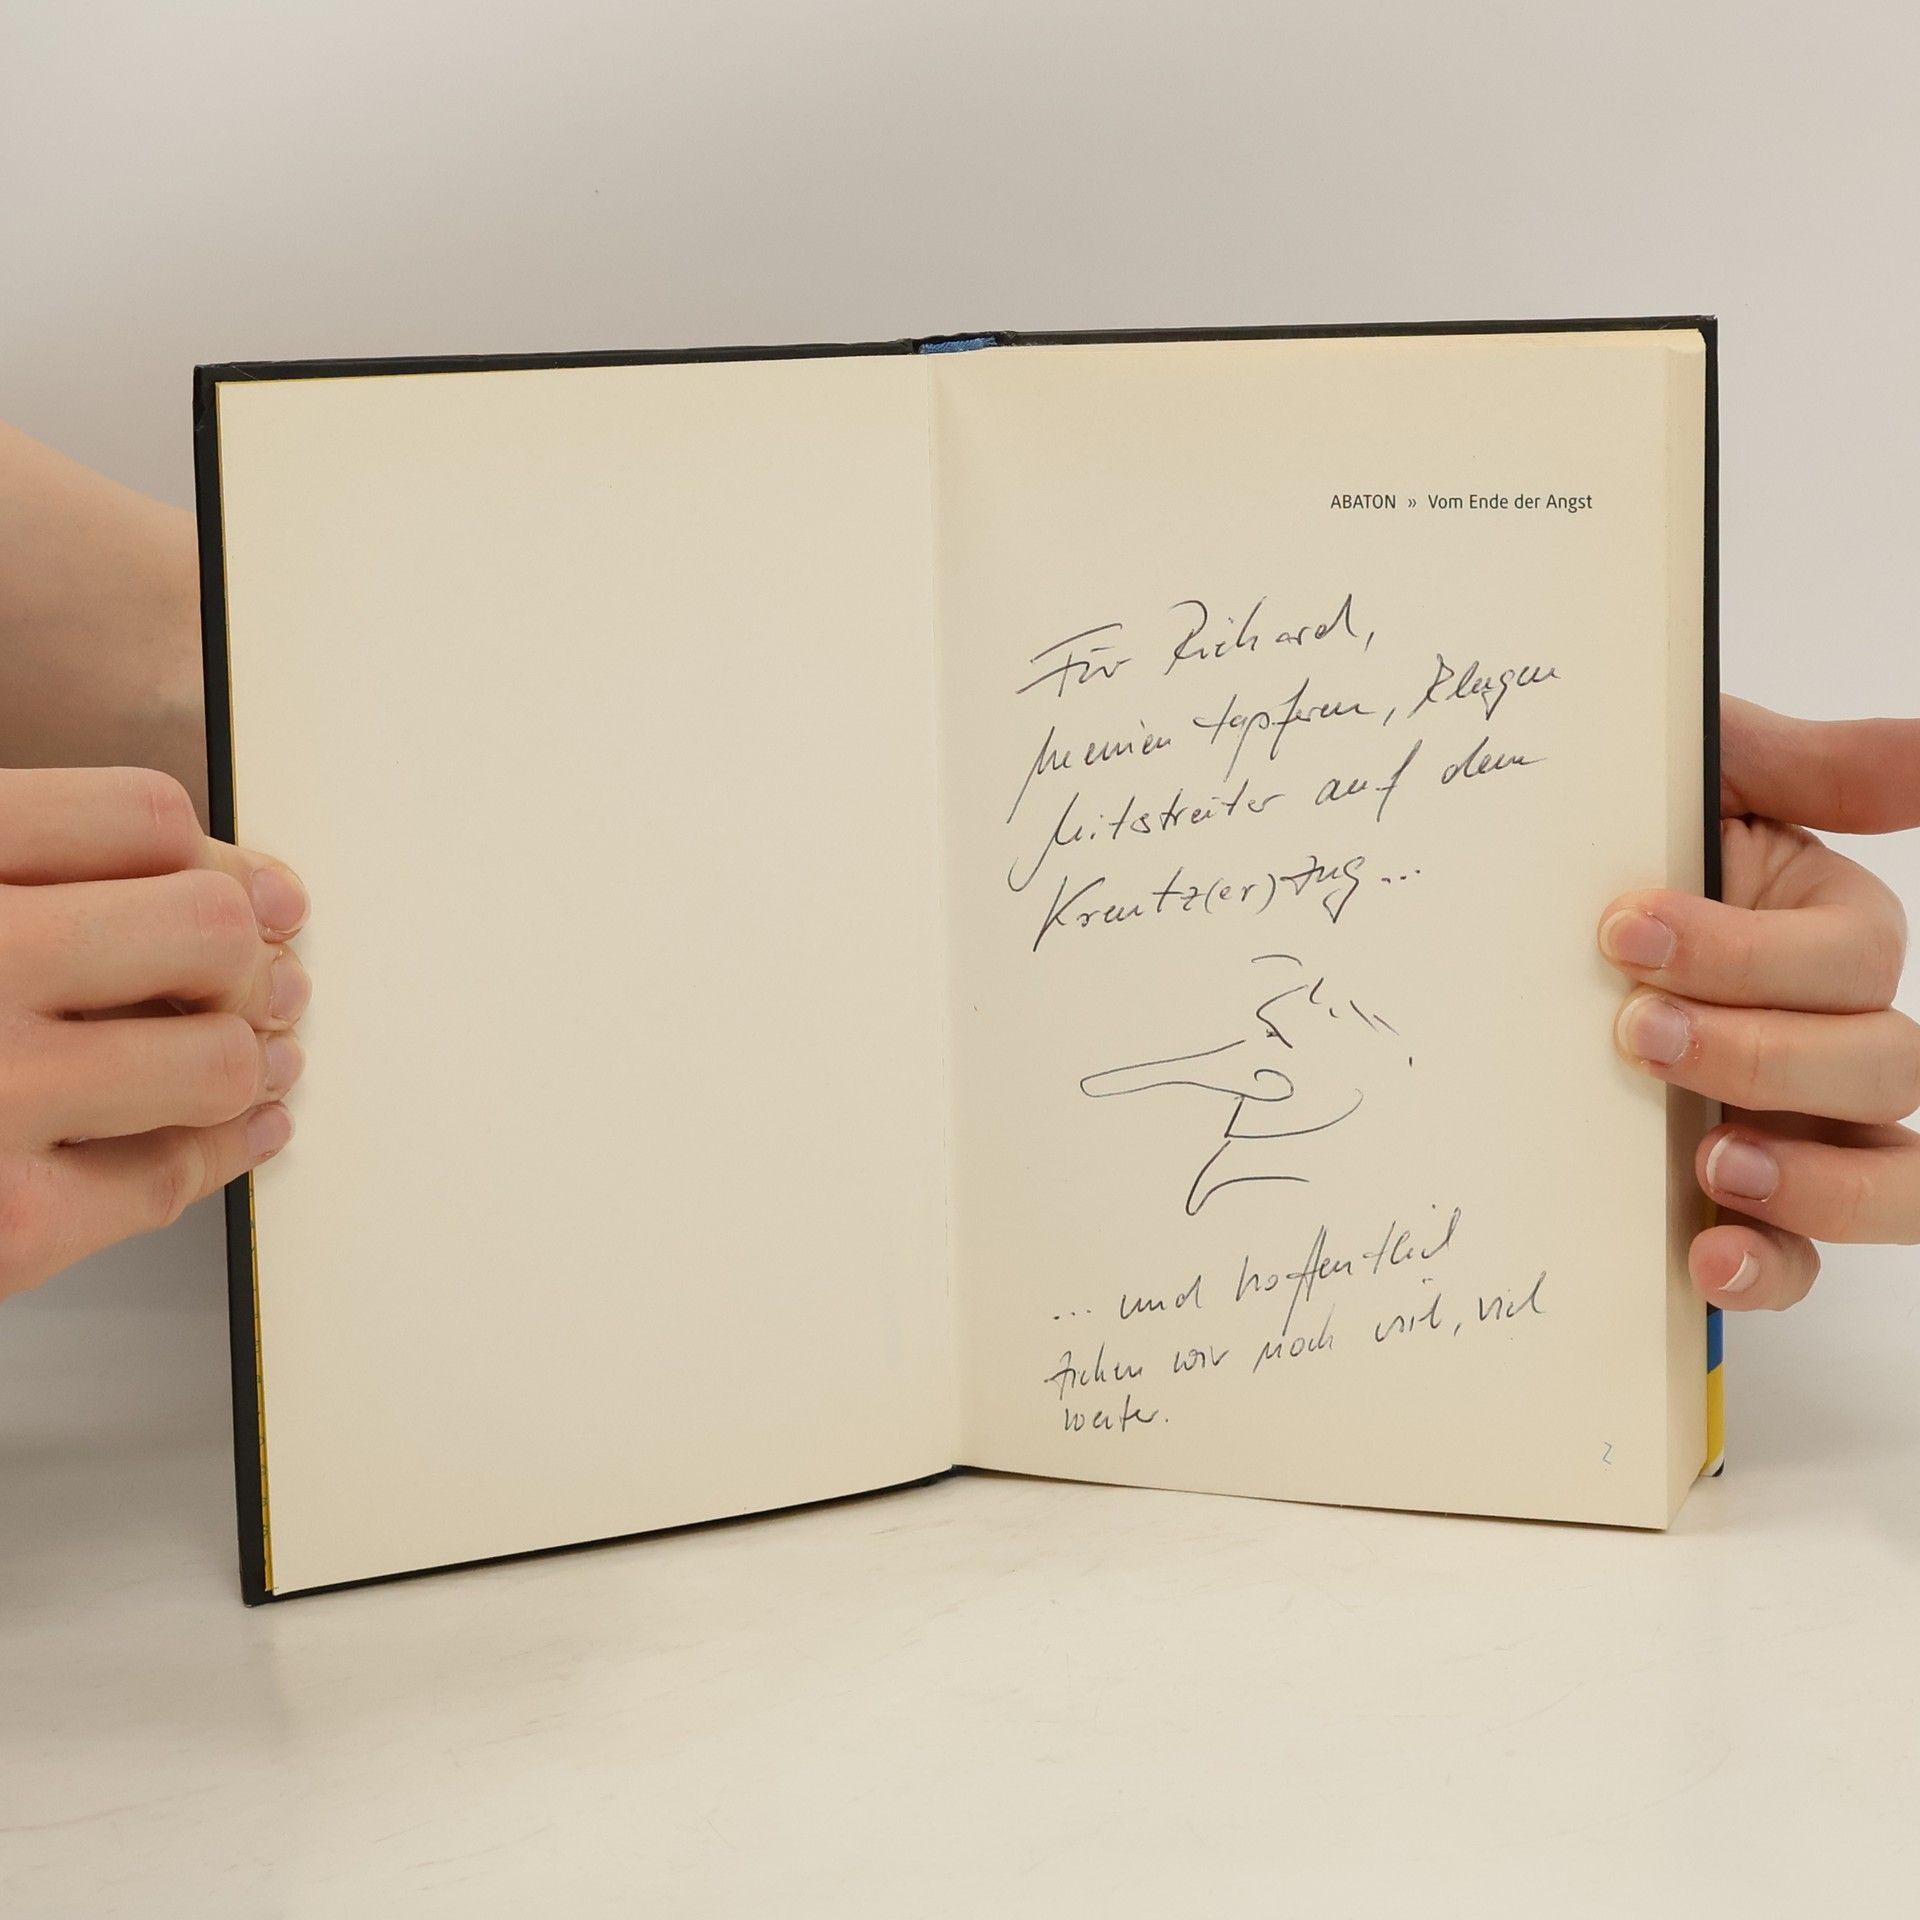 ABATON » Vom Ende der Angst
Für Richard,
meinen tapferen, klugen
Mitstreiter auf dem
Kreutz(er)zug...
... und hoffentlich
ziehen wir noch viel, viel
weiter.